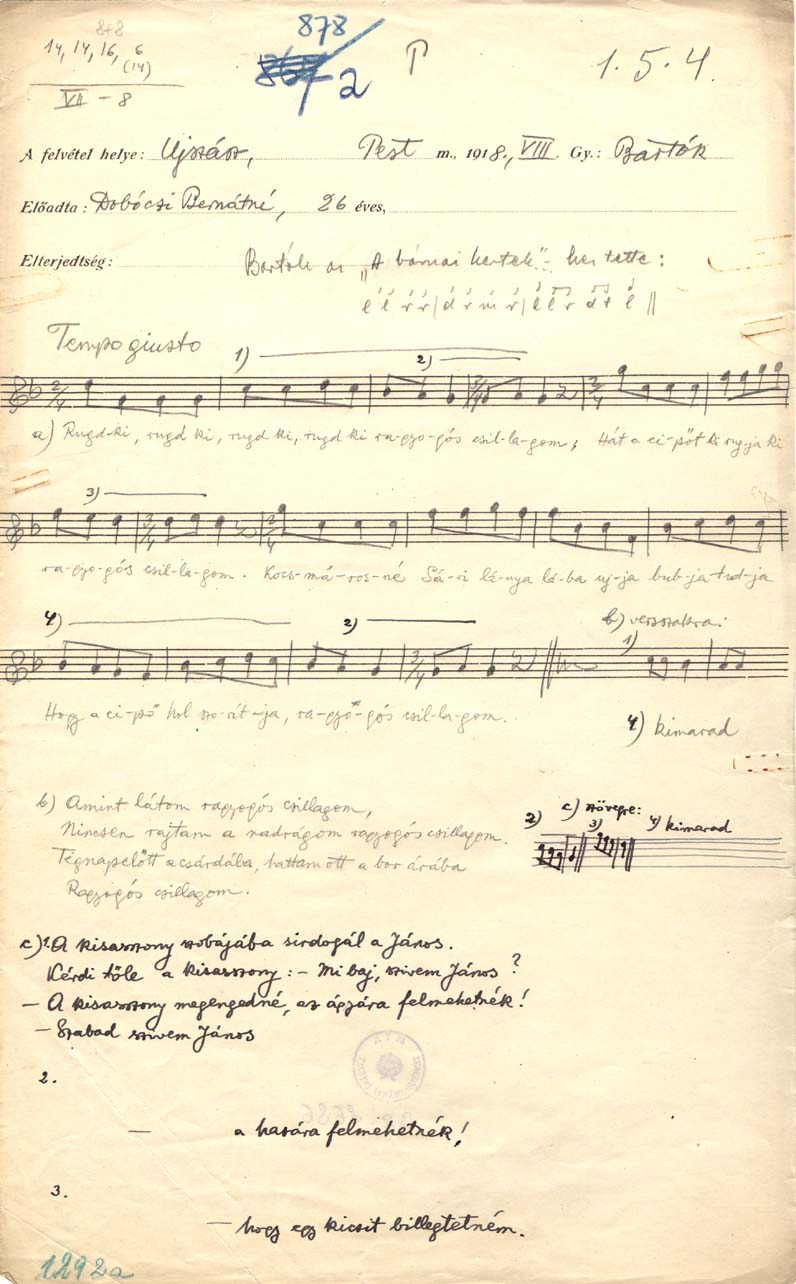 878
14, 14, 16, 6
(14)
VII - 8
878
2
1. 5. 4.
A felvétel helye: Ujszász, Pest m., 1918., VIII. Gy.: Bartók
Előadta: Dobóczi Bernátné, 26 éves,
Elterjedtség: Bartók az „A bárnai kertek"- hez tette:
l l r r | d r m r | l l r d t l ||
Tempo giusto
1)
2)
2/4 3/4 2/4
a) Rugd-ki, rugd ki, rugd ki, rugd ki ra-gyo-gós csil-la-gom, Hát a ci-pőt ki rug-ja ki
3)
3/4 2/4
ra-gyo-gós csil-la-gom. Kocs-má-ros-né Sá-ri lá-nya lá-ba uj-ja bub-ja tud-ja
4) 2) b) versszakra:
1)
3/4
Hogy a ci-pő hol szo-rít-ja, ra-gyo-gós csil-la-gom.
4) kimarad
b) Amint látom ragyogós csillagom,
Nincsen rajtam a nadrágom ragyogós csillagom.
Tegnapelőtt a csárdába, hattam ott a bor árába
Ragyogós csillagom.
c) szövegre:
2) 3) 4) kimarad
c) 1. A kisasszony szobájába sirdogál a János.
Kérdi tőle a kisasszony: - Mi baj, szivem János?
- A kisasszony megengedné, az ágyára felmehetnék!
- Szabad szivem János
2.
— a hasára felmehetnék!
3.
— hogy egy kicsit billegtetném.
1292a